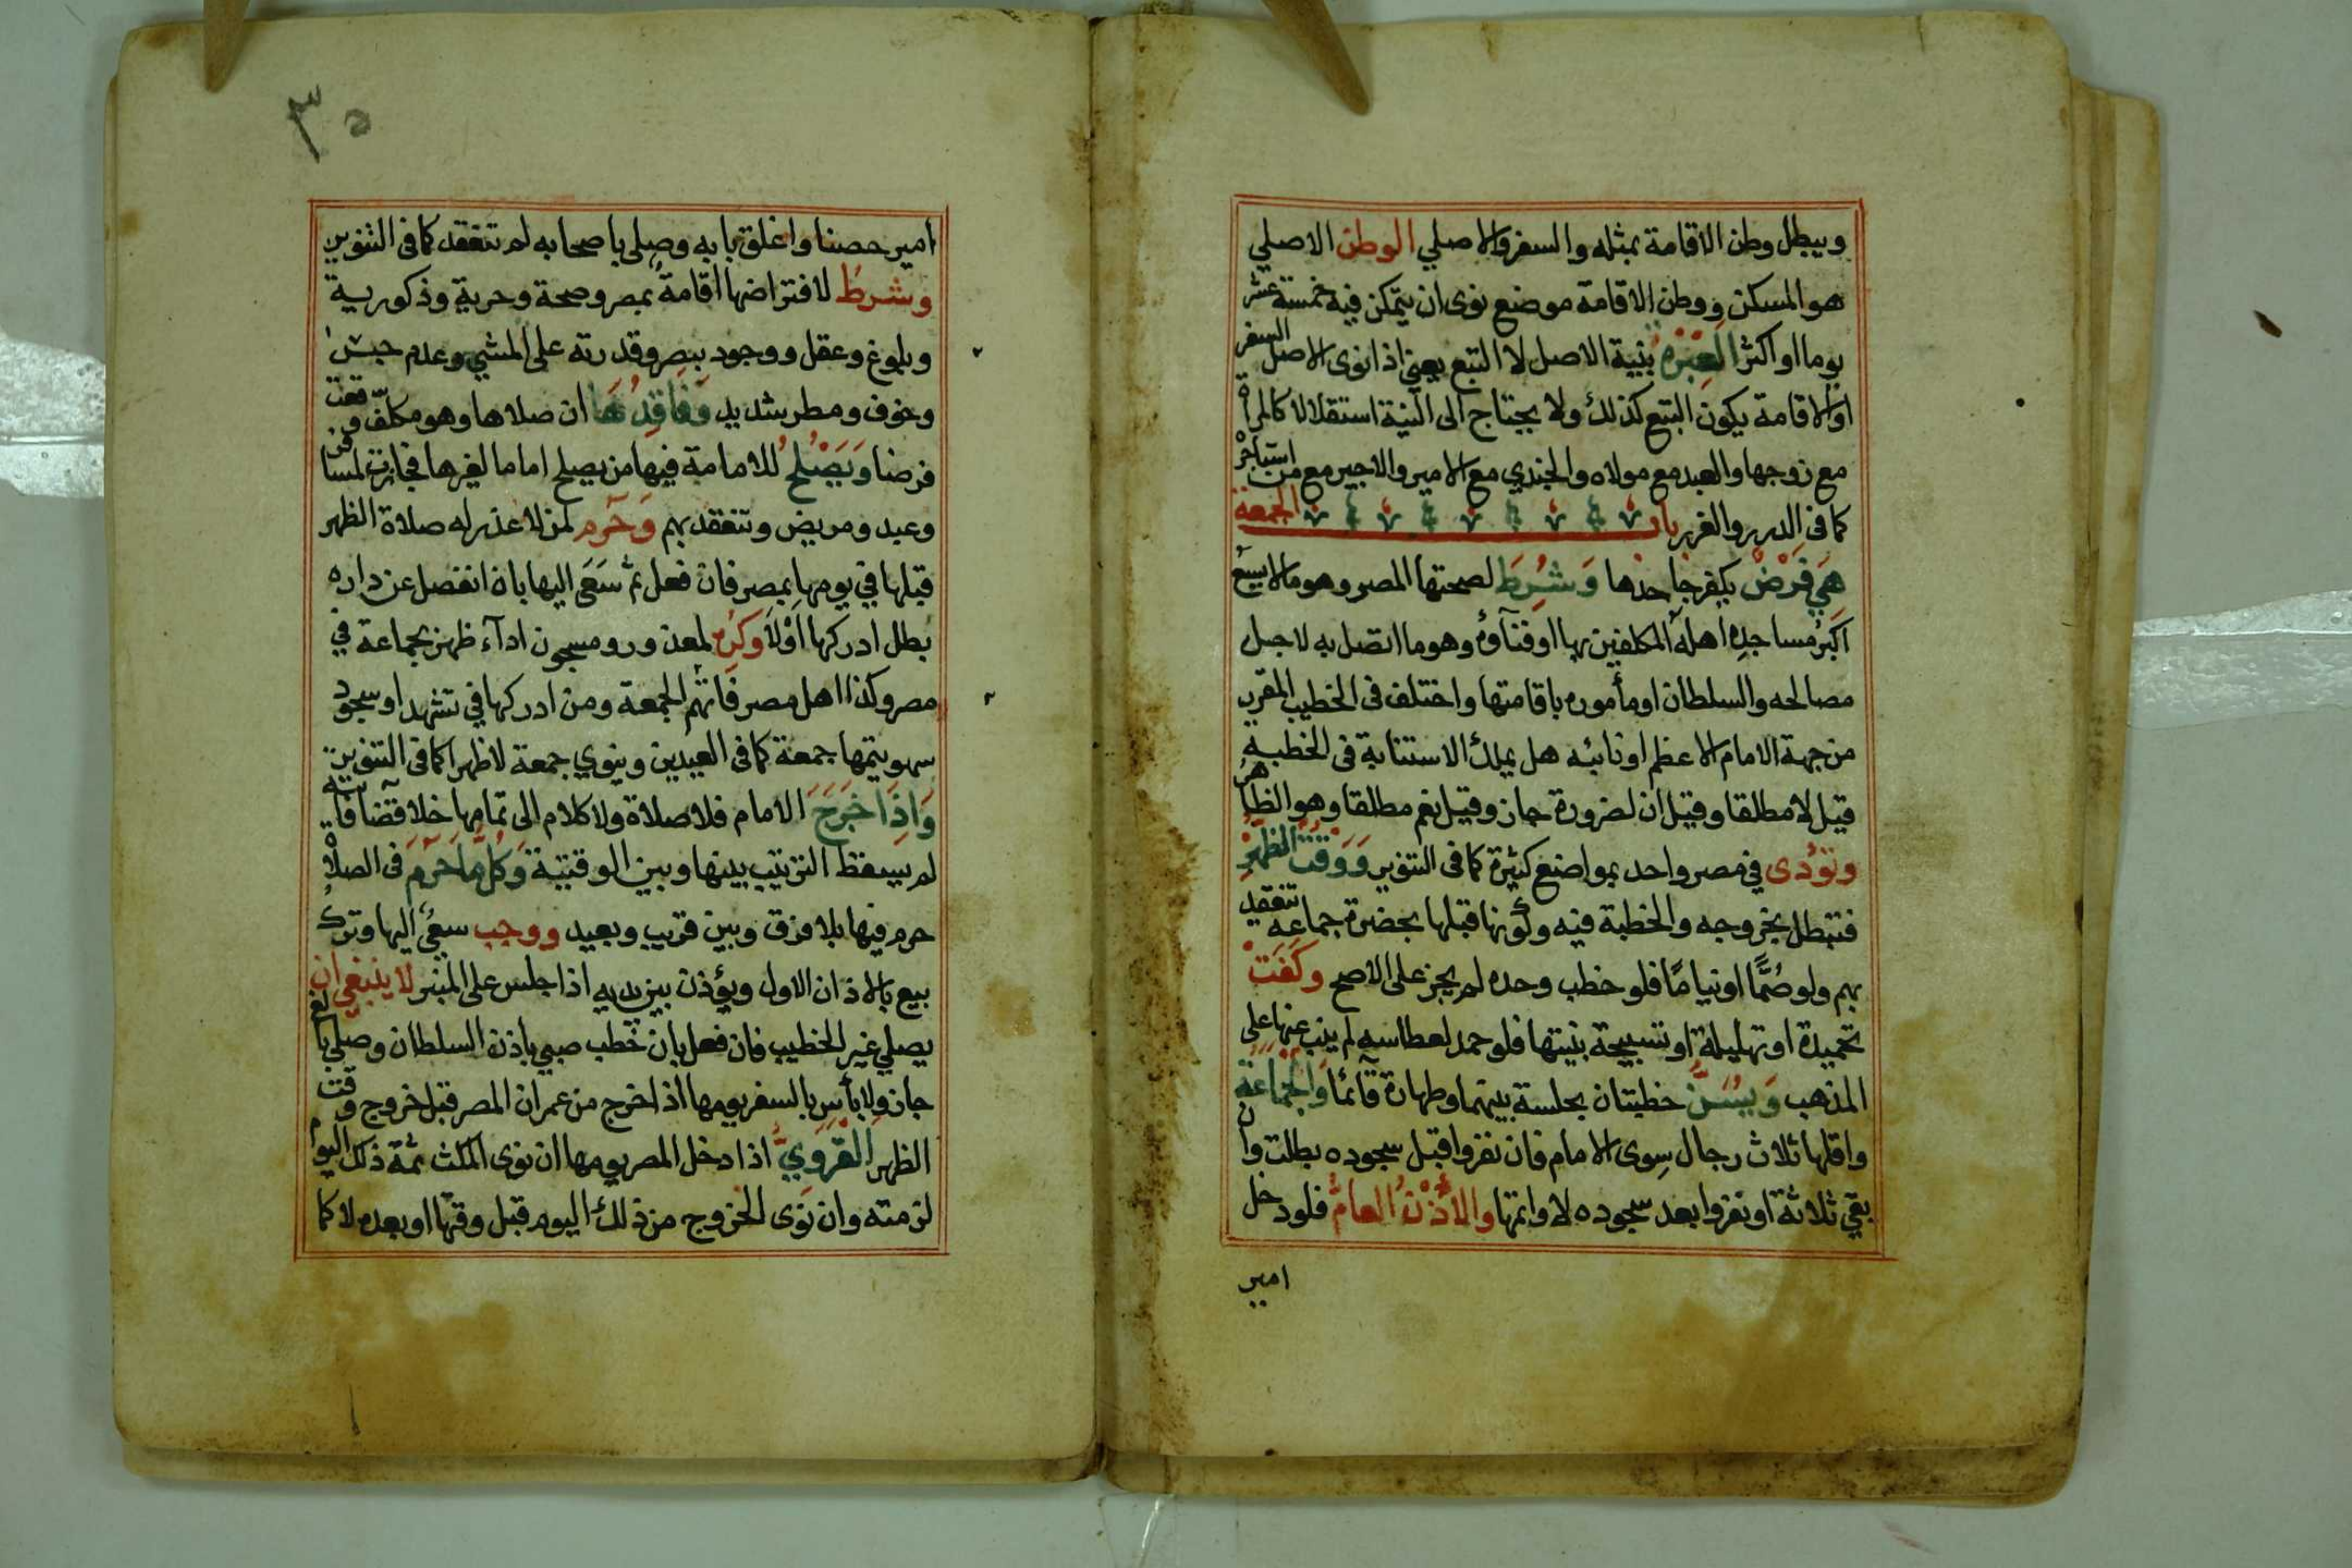 ويبطل وطن الاقامة بمثله والسفر والاصلي الوطن الاصلي
هو المسكن ووطن الاقامة موضع نوى ان يتمكن فيه خمسة عشر
يوما او اكثر العبرة بنية الاصل لا التبع يعني اذا نوى الاصل السفر
او الاقامة يكون التبع كذلك ولا يحتاج الى النية استقلالا كالمراة
مع زوجها والعبد مع مولاه والجندي مع الامير والاجير مع من استاجر
كما في الدرر والغرر باب الجمعة
هي فرض يكفر جاحدها وشرط لصحتها المصر وهو ما لا يسع
اكبر مساجده اهله المكلفين بها او فنآؤه وهو ما اتصل به لاجل
مصالحه والسلطان او مأموره باقامتها واختلف في الخطيب المقرر
من جهة الامام الاعظم او نائبه هل يملك الاستنابة في الخطبة
قيل لا مطلقا وقيل ان لضرورة جاز وقيل نعم مطلقا وهو الظاهر
وتؤدى في مصر واحد بمواضع كثيرة كما في التنوير ووقت الظهر
فتبطل بخروجه والخطبة فيه وكونها قبلها بحضرة جماعة تنعقد
بهم ولو صمّا او نياما فلو خطب وحده لم يجز على الاصح وكفت
تحميدة او تهليلة او تسبيحة بنيتها فلو حمد لعطاسه لم ينب عنها على
المذهب ويسن خطبتان بجلسة بينهما وطهارة قآئما والجماعة
واقلها ثلاث رجال سوى الامام فان نفروا قبل سجوده بطلت وان
بقي ثلاثة او نفروا بعد سجوده لا واتمها والاذن العام فلو دخل
امير
٣٥
امير حصنا واغلق بابه وصلى باصحابه لم تنعقد كما في التنوير
وشرط لافتراضها اقامة بمصر وصحة وحرية وذكورية
وبلوغ وعقل ووجود بصر وقدرته على المشي وعدم حبس
وخوف ومطر شديد وفاقدها ان صلاها وهو مكلّف وقعت
فرضا ويصلح للامامة فيها من يصلح اماما لغيرها فجازت لمسافر
وعبد ومريض وتنعقد بهم وحرم لمن لا عذر له صلاة الظهر
قبلها في يومها بمصر فان فعل ثم سعى اليها بان انفصل عن داره
بطل ادركها اولا وكره لمعذور ومسجون ادآء ظهر بجماعة في
مصر وكذا اهل مصر فاتتهم الجمعة ومن ادركها في تشهد او سجود
سهو يتمها جمعة كما في العيدين وينوي جمعة لا ظهرا كما في التنوير
واذا خرج الامام فلا صلاة ولا كلام الى تمامها خلا قضا فآئتة
لم يسقط الترتيب بينها وبين الوقتية وكل ما حرم في الصلاة
حرم فيها بلا فرق وبين قريب وبعيد ووجب سعي اليها وترك
بيع بالاذان الاول ويؤذن بين يديه اذا جلس على المنبر لا ينبغي ان
يصلي غير الخطيب فان فعل بان خطب صبي باذن السلطان وصلى بالغ
جاز ولا بأس بالسفر يومها اذا خرج من عمران المصر قبل خروج وقت
الظهر القروي اذا دخل المصر يومها ان نوى المكث ثمة ذلك اليوم
لزمته وان نوى الخروج من ذلك اليوم قبل وقتها او بعده لا كما